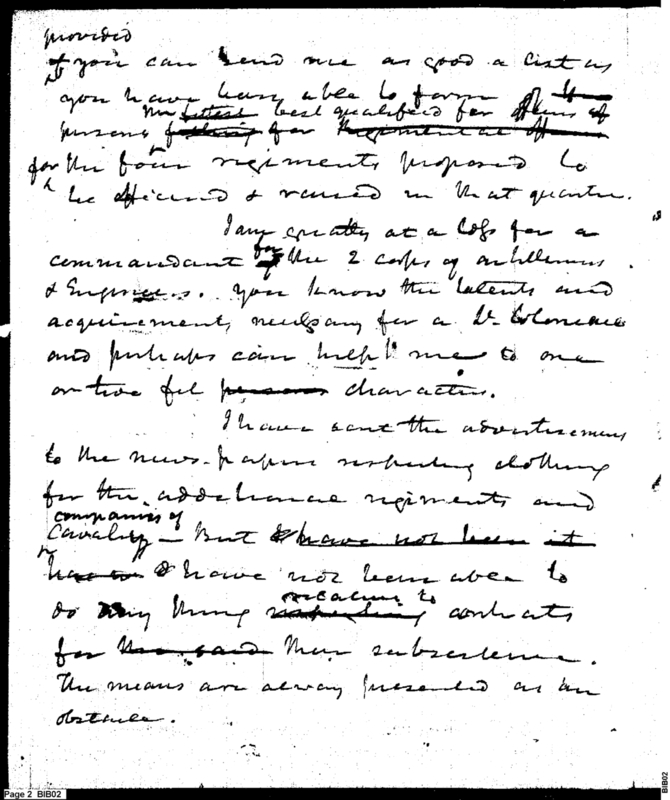 provided
if you can send me as good a list as
you have been able to form of the
the fittest best qualified for officers of
persons for Regimental officers
for the four regiments proposed to
be officered & raised in that quarter.
I am greatly at a loss for a
commandant for the 2 corps of artillerists
& Engineers. you know the talents and
acquirements necessary for a Lt. Colonel
and perhaps can help me to one
or two fit persons characters.
I have sent the advertisement
to the news-papers respecting clothing
for the additional regiments and
companies of
Cavalry - But I have not been it
I have not been able to
relative to
do any thing respecting contracts
for the said their subsistence.
The means are alway presented as an
obstacle.
Page 2 BIB02
BIB02